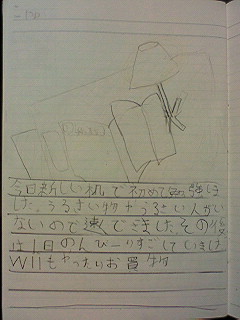 今日新しい机で初めて勉強しま
した。うるさい物やうるさい人がい
ないので速くできました。その後
は1日のんびーりすごしていました
Wiiもやったりお買物